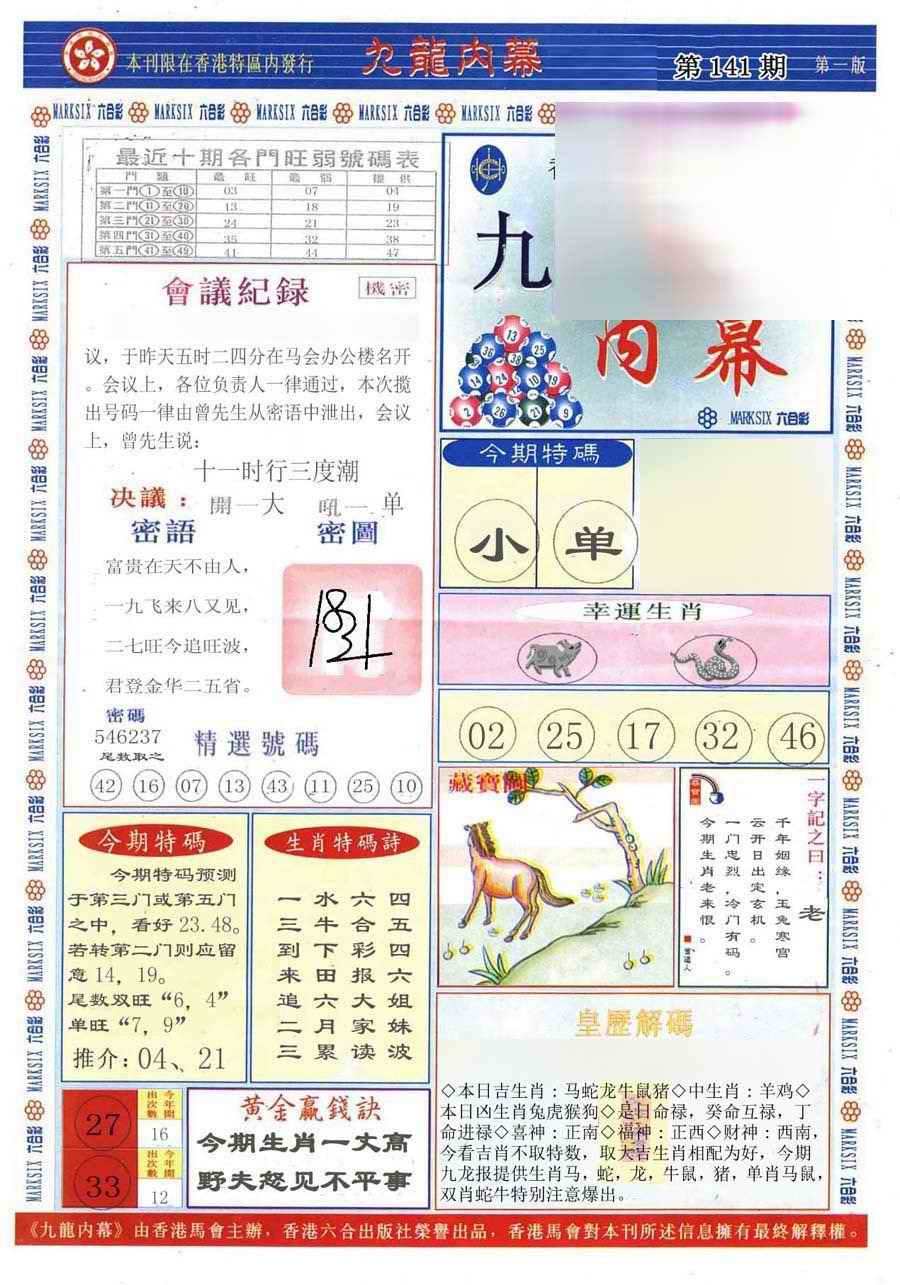 本刊限在香港特區内發行
九龍内幕
第 141 期
第一版
MARKSIX 六合彩 MARKSIX 六合彩 MARKSIX 六合彩 MARKSIX 六合彩 MARKSIX 六合彩
最近十期各門旺弱號碼表
門 類 最 旺 最 弱 提 供
第一門①至⑩ 03 07 04
第二門⑪至⑳ 13 18 19
第三門㉑至㉚ 24 21 23
第四門㉛至㊵ 35 32 38
第五門㊶至㊾ 41 44 47
會議紀録
機密
议，于昨天五时二四分在马会办公楼名开
。会议上，各位负责人一律通过，本次揽
出号码一律由曾先生从密语中泄出，会议
上，曾先生说：
十一时行三度潮
决議：開一大 吼一单
密語 密圖
富贵在天不由人，
一九飞来八又见，
二七旺今追旺波，
君登金华二五省。
密碼
546237
尾数取之
精選號碼
42 16 07 13 43 11 25 10
九
内幕
13
36 38 25
14 24 10 19
2 26 21 9
MARKSIX 六合彩
今期特碼
小 单
幸運生肖
02 25 17 32 46
藏寶圖
一字記之曰：老
千年姻缘，玉兔寒宫
云开日出定玄机。
一门忠烈，冷门有码。
今期生肖老来恨。
今期特碼
今期特码预测
于第三门或第五门
之中，看好 23.48。
若转第二门则应留
意 14，19。
尾数双旺“6，4”
单旺“7，9”
推介：04、21
生肖特碼詩
一水六四
三牛合五
到下彩四
来田报六
追六大姐
二月家妹
三累读波
27
今年開出次數
16
33
今年開出次數
12
黄金赢錢訣
今期生肖一丈高
野夫怒见不平事
皇歷解碼
◇本日吉生肖：马蛇龙牛鼠猪◇中生肖：羊鸡◇
本日凶生肖兔虎猴狗◇是日命禄，癸命互禄，丁
命进禄◇喜神：正南◇福神：正西◇财神：西南，
今看吉肖不取特数，取大吉生肖相配为好，今期
九龙报提供生肖马，蛇，龙，牛鼠，猪，单肖马鼠，
双肖蛇牛特别注意爆出。
《九龍内幕》由香港馬會主辦，香港六合出版社榮譽出品，香港馬會對本刊所述信息擁有最終解釋權。